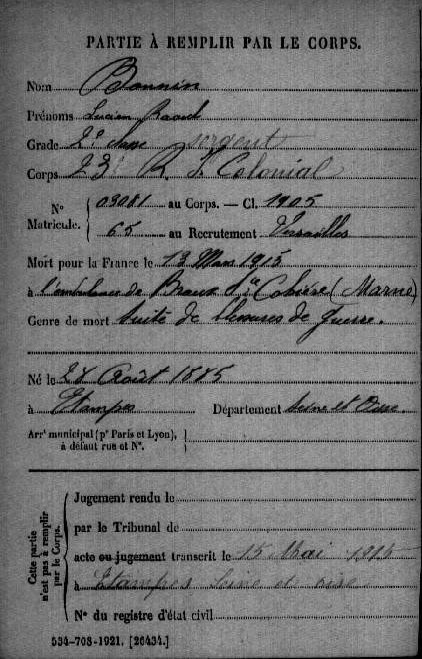 PARTIE À REMPLIR PAR LE CORPS.
Nom Bonnin
Prénoms Lucien Raoul
Grade 2e classe sergent
Corps 23e R. I. Colonial
N° Matricule. { 03081 au Corps. — Cl. 1905
65 au Recrutement Versailles
Mort pour la France le 13 Mars 1915
à l'ambulance de Braux Ste Cohière (Marne)
Genre de mort Suite de blessures de Guerre.
Né le 28 Août 1885
à Etampes Département Seine et Oise.
Arrt municipal (pr Paris et Lyon), à défaut rue et N°. }
Cette partie n'est pas à remplir par le Corps.
Jugement rendu le
par le Tribunal de
acte ou jugement transcrit le 15 Mai
à Etampes Seine et oise
N° du registre d'état civil
534-708-1921. [26434.]